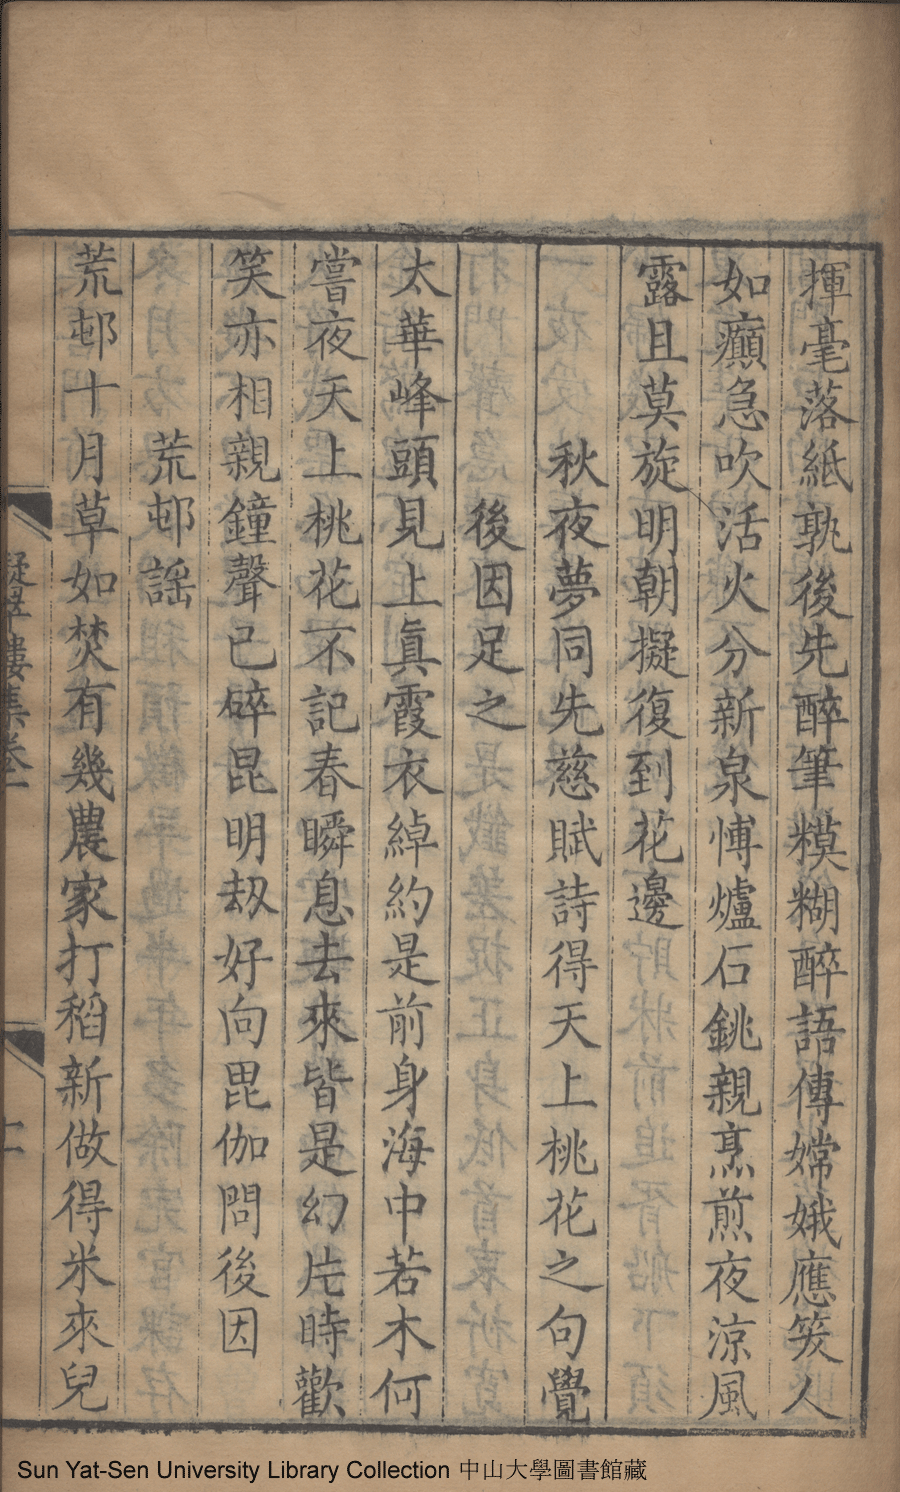 揮毫落紙孰後先醉筆糢糊醉語傳嫦娥應笑人
如癲急吹活火分新泉愽爐石銚親烹煎夜涼風
露且莫旋明朝擬復到花邊
秋夜夢同先慈賦詩得天上桃花之句覺
後因足之
太華峰頭見上眞霞衣綽約是前身海中若木何
嘗夜天上桃花不記春瞬息去來皆是幻片時歡
笑亦相親鐘聲已碎昆明劫好向毘伽問後因
荒邨謡
荒邨十月草如焚有幾農家打稻新做得米來兒
凝翠樓集卷一
Sun Yat-Sen University Library Collection 中山大學圖書館藏